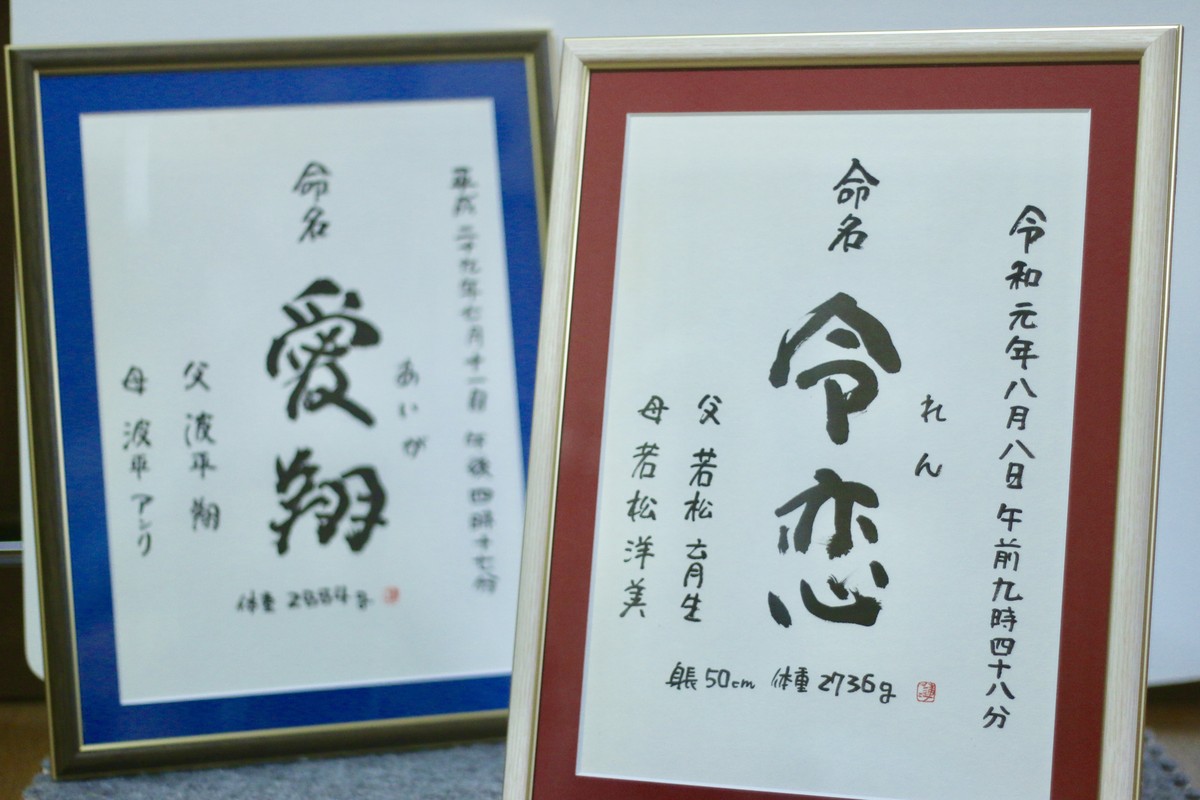 令和元年八月八日 午前九時四十八分
れん
命名 令恋
父 若松 育生
母 若松 洋美
身長 50cm 体重 2736g
平成二十九年七月十一日 午後四時十七分
あいが
命名 愛翔
父 波平 翔
母 波平 アンリ
体重 2884g